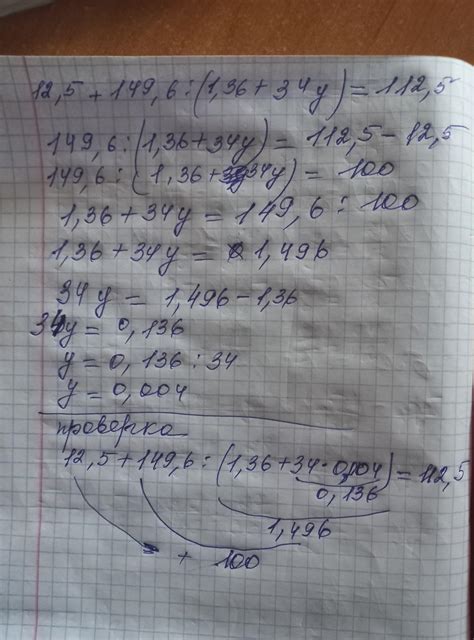 12,5 + 149,6 : (1,36 + 34y) = 112,5
149,6 : (1,36 + 34y) = 112,5 - 12,5
149,6 : (1,36 + 34y) = 100
1,36 + 34y = 149,6 : 100
1,36 + 34y = 1,496
34y = 1,496 - 1,36
34y = 0,136
y = 0,136 : 34
y = 0,004
проверка
12,5 + 149,6 : (1,36 + 34 · 0,004) = 112,5
0,136
1,496
+ 100